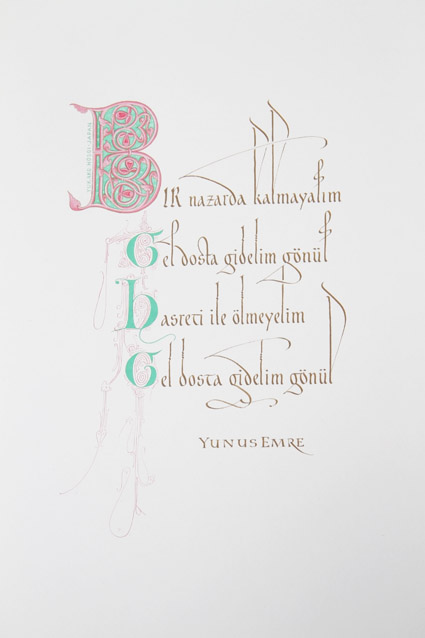 BIR nazarda kalmayalım
Gel dosta gidelim gönül
hasreti ile ölmeyelim
Gel dosta gidelim gönül
YUNUS EMRE